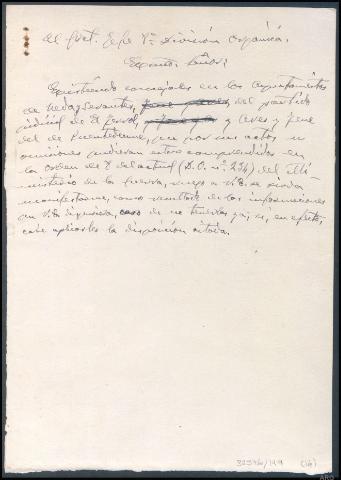 Al Gral. Jefe 8ª División Orgánica.
Excmo. Señor:
Existiendo concejales en los Ayuntamientos
de del partido
judicial de El Ferrol, y Ares y Fene
del de Puentedeume, que por sus actos u
omisiones pudieran estar comprendidos en
la orden de 8 del actual (D.O. nº 234) del Mi-
nisterio de la Guerra, ruego a V.E. se sirva
manifestarme, como resultado de las informaciones
que V.E. disponga, caso de no tenerlas ya, si, en efecto,
cabe aplicarles la disposición citada.
(14)